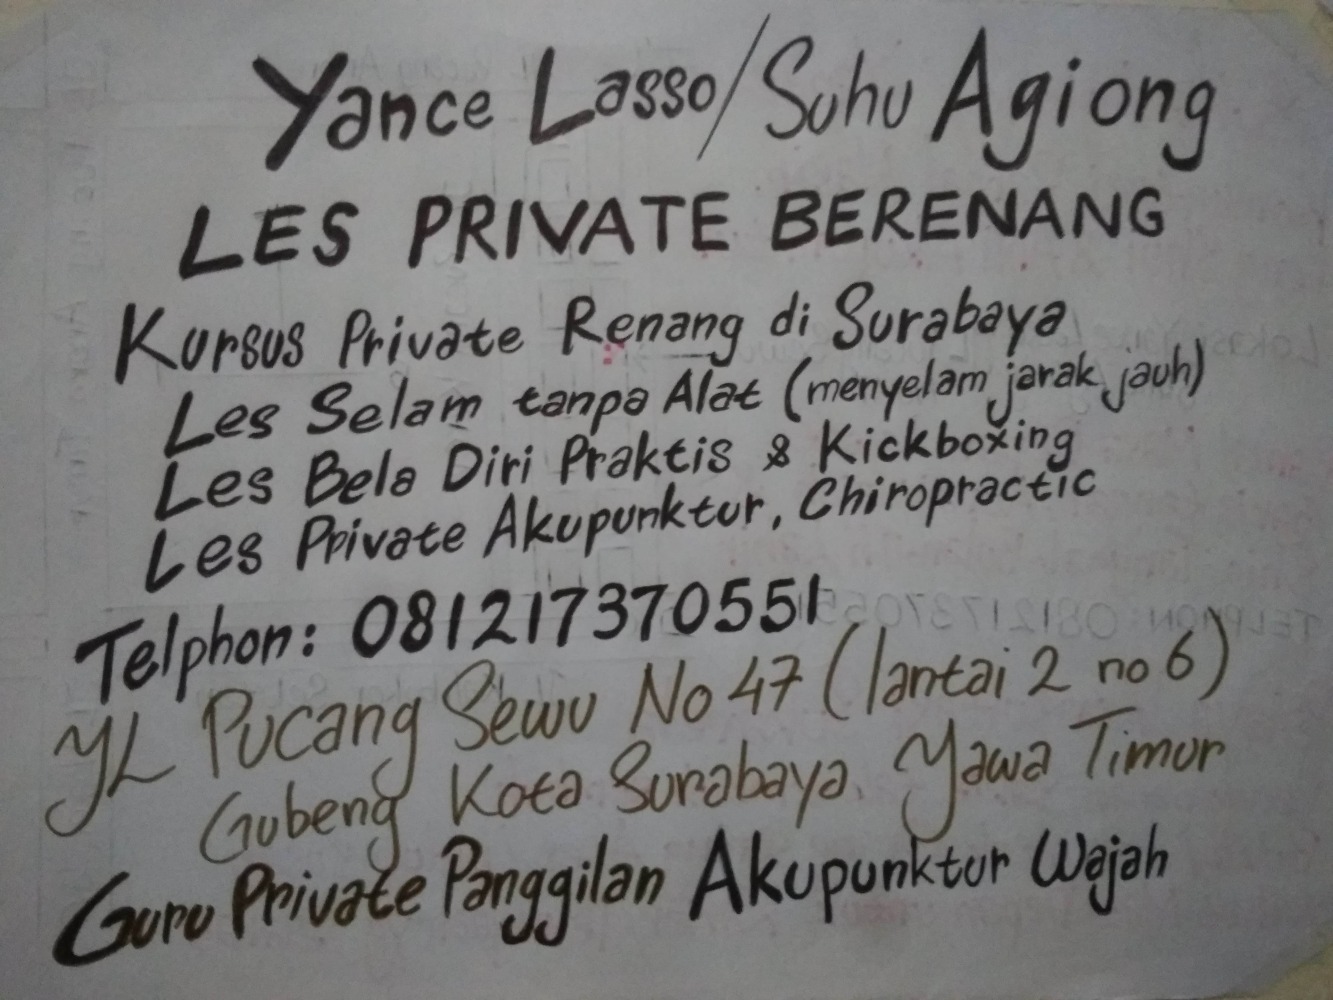 Yance Lasso/Suhu Agiong
LES PRIVATE BERENANG
Kursus Private Renang di Surabaya
Les Selam tanpa Alat (menyelam jarak jauh)
Les Bela Diri Praktis & Kickboxing
Les Private Akupunktur, Chiropractic
Telphon: 081217370551
YL Pucang Sewu No 47 (lantai 2 no 6)
Gubeng Kota Surabaya Yawa Timur
Guru Private Panggilan Akupunktur Wajah